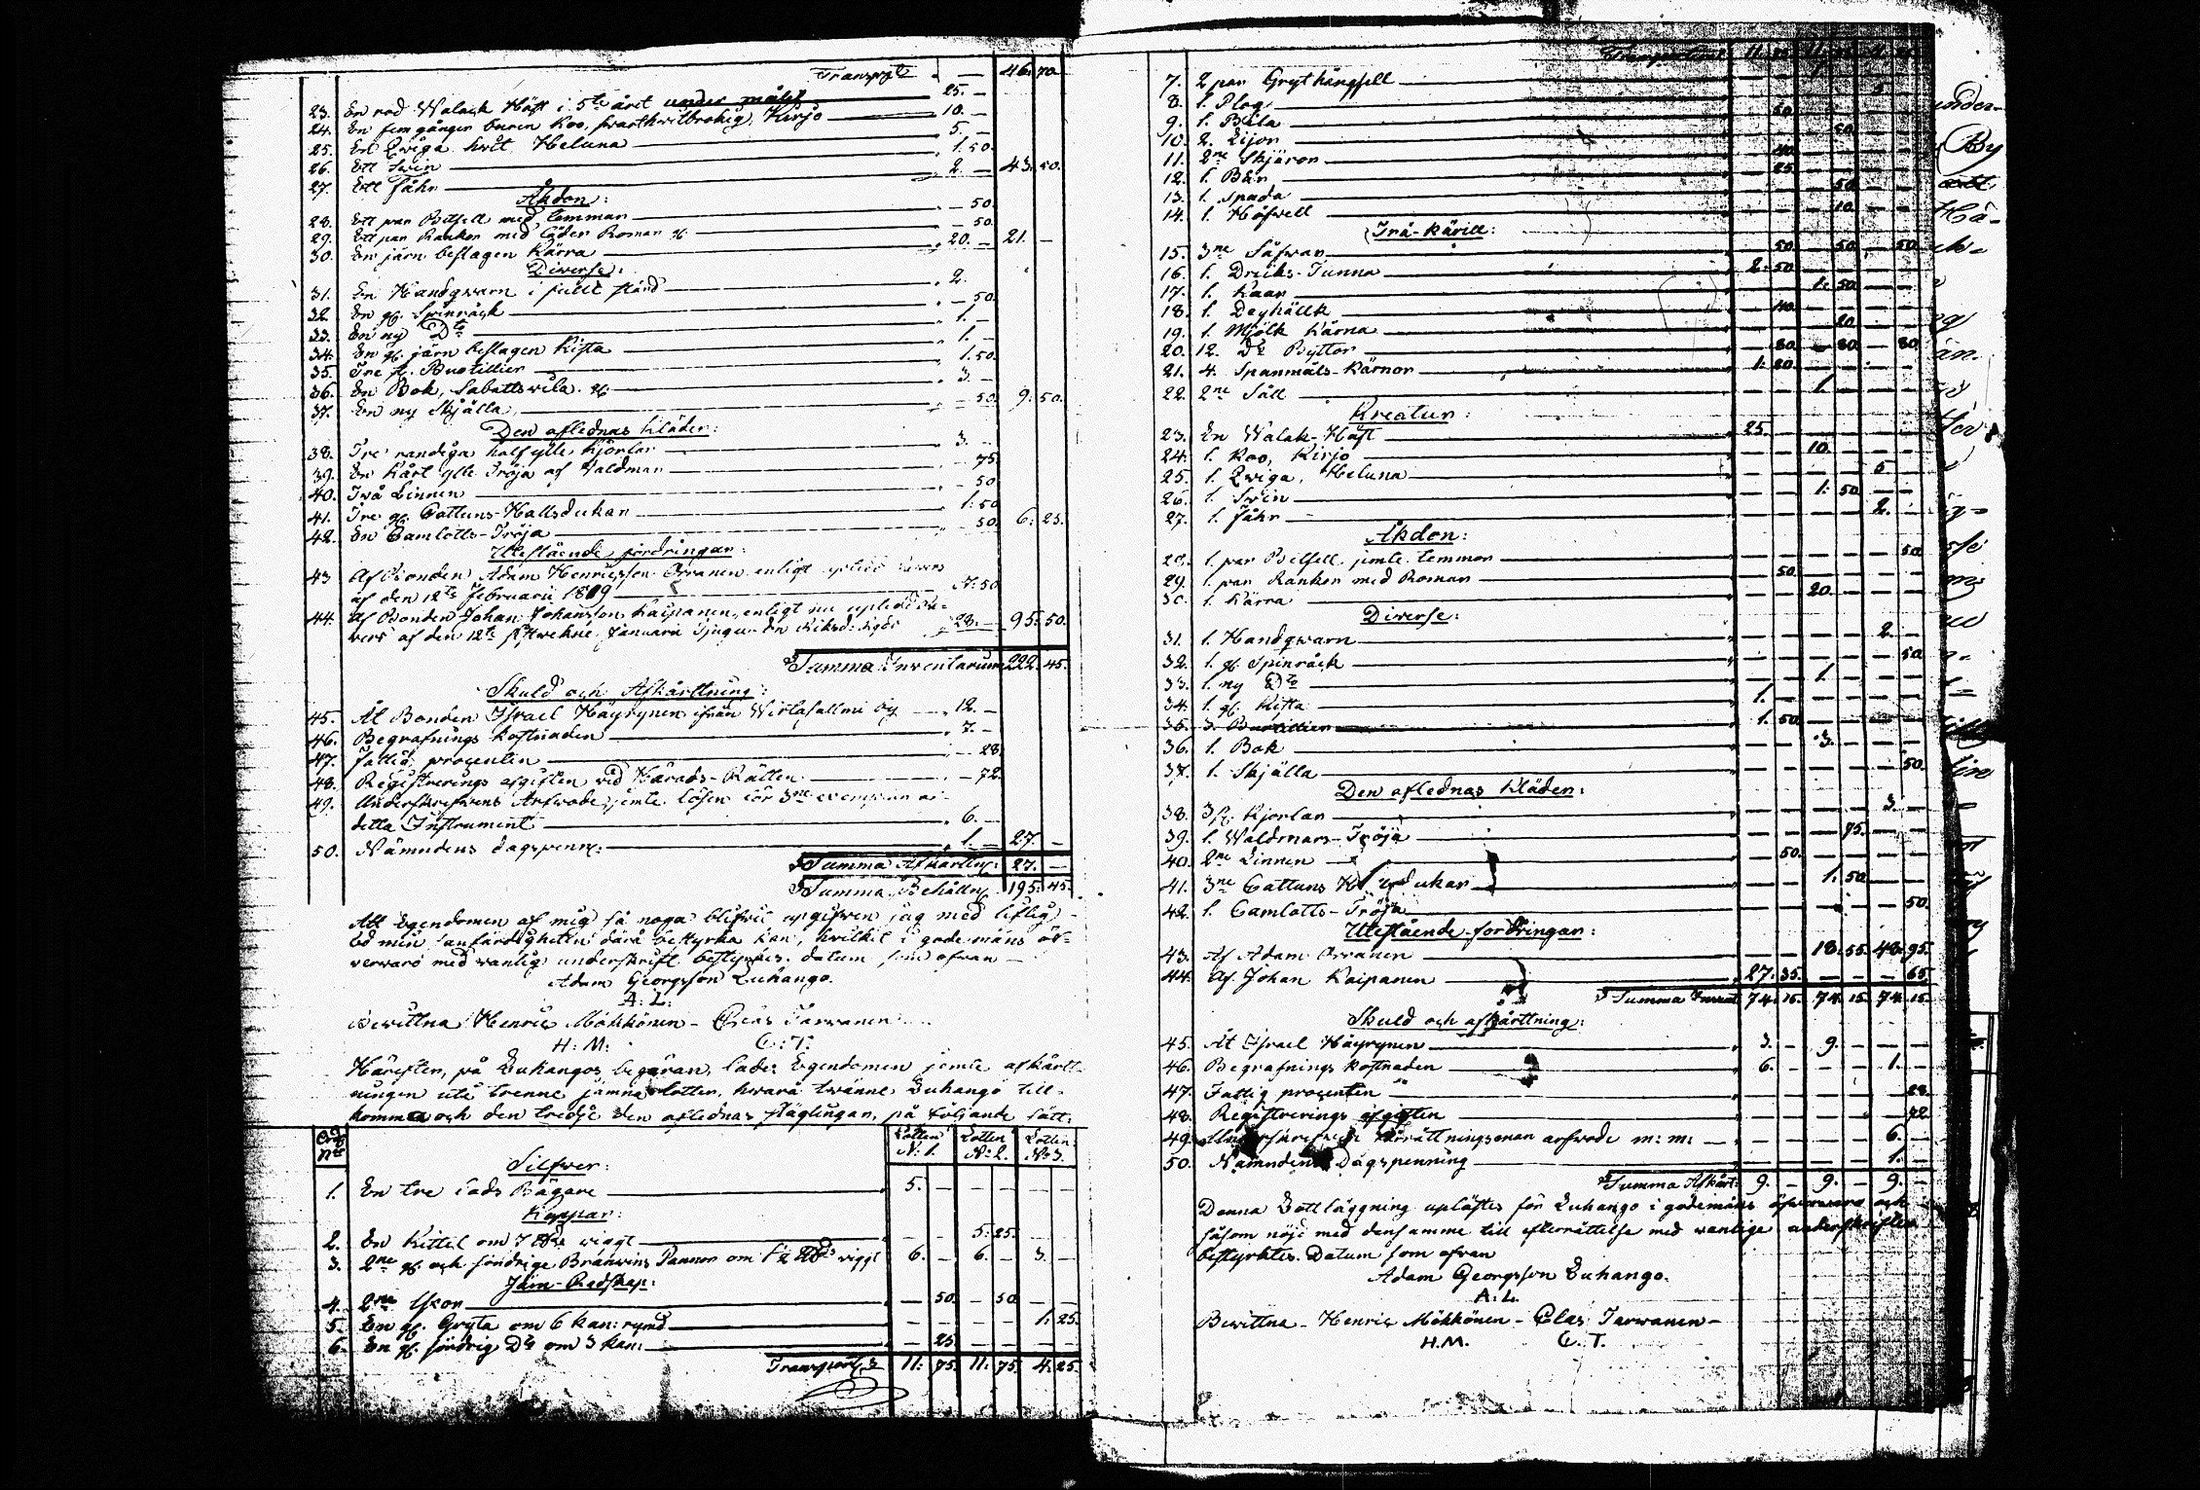 Transport „ — 46. 70.
23. En röd Walack Häst i 5te året under målet 25. —
24. En fem gånger buren Koo, svarthvitbrokig, Kirjo „ 10. —
25. En Qviga hvit Heluna „ 5. —
26. Ett Swin „ 1. 50.
27. Ett Fåhr „ 2. — 43. 50.
Åkdon:
28. Ett par Bitsell med Lemmar „ — 50.
29. Ett par Rankor med läder Remar „ — 50.
30. En järn beslagen Kärra „ 20. — 21. —
Diverse:
31. En Handqwarn i fullt stånd „ 2.
32. En gl. Spinråck „ — 50.
33. En ny Dto „ 1. —
34. En gl. järn beslagen Kista „ 1. —
35. Tre st. Buotillier „ 1. 50.
36. En Bok, Sabattswila „ 3. —
37. En ny Skjälla „ — 50. 9. 50.
Den aflednas Kläder:
38. Tre randiga halfylle Kjortlar „ 3. —
39. En Kårt ylle Tröja af Waldmar „ — 75.
40. Två Linnen „ — 50
41. Tre gl. Cattuns-Hallsdukar „ 1. 50
42. En Camlotts-Tröja „ — 50. 6. 25.
Utestående fordringar:
43. Af Bonden Adam Henricsson Orranen enligt
af den 12te Februarii 1819
44. Af Bonden Johan Johansson Kaipanen, enligt nu
af den 12te Januarii Tjugu 28. — 95. 50.
Summa Inventarium 222. 45.
Skuld och Afkårttning:
45. Åt Bonden Israel Häyrynen ifrån Wirtasallmi by „ 12. —
46. Begrafnings kostnaden „ 7. —
47. Fattig procenten — 28
48. Registrerings afgiften vid Härads-Rätten — 72.
49. Underskrefvens Arfwode jemte lösen för 3ne
detta Instrument „ 6. —
50. Nämndens dagspenng: „ 1. — 27. —
Summa Afkårttng: 27. —
Summa Behålln: 195. 45.
Att Egendomen af mig så noga blifvit upgifven jag med liflig
Ed min sanfärdighetten därå bestyrka kan, hvilket i gode mäns öf-
verwaro med wanlig underskrift bestyrkes. datum som ofvan —
Adam Georgsson Luhango.
A: L:
Bewittna Henric Mökkönen - Clas Tarwanen
H: M: C: T:
Härefter, på Luhangos begäran, lades Egendomen jemte afkårtt-
ningen uti trenne jämna lotter, hvaraf tvänne Luhango till-
komma och den tredje den aflednas släglingar, på följande sätt:
Ord. No Lotten N: 1. Lotten N: 2. Lotten N: 3.
Silfwer:
1. En tre lods Bägare 5. — — — — —
Koppar:
2. En Kittel om 7 wiggt — — 5. 25. — —
3. 2ne gl. och söndrige Bränwins Pannor om wiggt 6. — 6. — 3. —
Järn-Redskap:
4. 2ne Yxor — 50. — 50. — —
5. En gl. Gryta om 6 kan: rymd — — — — 1. 25.
6. En gl. söndrig Dto om 3 kan: — 25. — — — —
Transport 11. 75. 11. 75. 4. 25.
Transport 11. 75. 11. 75. 4. 25.
7. 2 par Grythängsell
8. 1. Plog
9. 1. Bila
10. 2. Lijor
11. 2ne Skjäror
12. 1. Bår
13. 1. Spada
14. 1. Håfwell
Trä-Kärill:
15. 3ne Såfwar — 50. — 50. — 50.
16. 1. Dricks-Tunna 2. 50 — — — —
17. 1. Kaar — — 1. 50. — —
18. 1. Deghällk — 40. — — — —
19. 1. Mjölk Kärna — — — 20. — —
20. 12. Dto Byttor — 80. — 80. — 80.
21. 4. Spanmåls-Kärnor 1. 20. — — — —
22. 2ne Såll — — 1. — — —
Kreatur:
23. En Walak-Häst 25. — — — — —
24. 1. Koo, Kirjo — — 10. — — —
25. 1. Qviga, Heluna — — — — 5. —
26. 1. Swin — — 1. 50. — —
27. 1. Fåhr — — — — 2. —
Åkdon:
28. 1. par Bitsell jemte Lemmar — — — — — 50
29. 1. par Rankor med Remar — 50. — — — —
30. 1. Kärra — — 20. — — —
Diverse:
31. 1. Handqwarn — — — — 2. —
32. 1. gl. Spinråck — — — — — 50
33. 1. ny Dto — — 1. — — —
34. 1. gl. Kista 1. — — — — —
35. 3. Buotillier 1. 50. — — — —
36. 1. Bok — — 3. — — —
37. 1. Skjälla — — — — — 50.
Den aflednas Kläder:
38. 3 st. Kjortlar — — — — 3. —
39. 1. Waldmars-Tröja — — — 75. — —
40. 2ne Linnen — 50. — — — —
41. 3ne Cattuns — — 1. 50 — —
42. 1. Camlotts-Tröja — — — — — 50.
Utestående fordringar:
43. Af Adam Orranen — — 18. 55. 48. 95.
44. Af Johan Kaipanen 27. 35. — — — 65.
Summa Invent. 74. 15. 74. 15. 74. 15.
Skuld och afkårttning:
45. Åt Israel Häyrynen 3. — 9. — — —
46. Begrafnings kostnaden 6. — — — 1. —
47. Fattig procenten — — — — — 28.
48. Registrerings afgiften — — — — — 72.
49. förrättningsman arfwode m: m: — — — — 6. —
50. Nämndens Dagspenning — — — — 1. —
Summa Afkårt: 9. — 9. — 9. —
Denna Lottläggning uplästes för Luhango i godemäns öfverwaro och
såsom nöjd med densamme till efterrättelse med wanlige underskrifter
bestyrktes. Datum som ofvan
Adam Georgsson Luhango.
A: L.
Bewittna - Henric Mökkönen - Clas Tarwanen -
H. M. C. T.